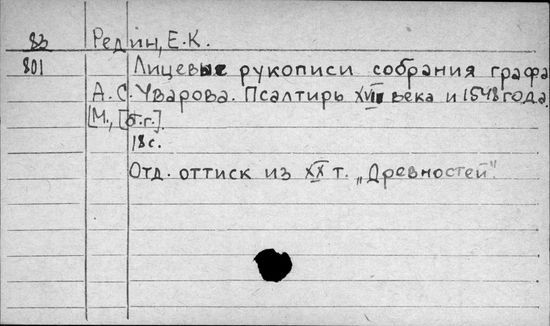 83 Редин, Е.К.
801 Лицевые рукописи собрания графа
А.С. Уварова. Псалтирь XVII века и 1548 года.
[М., [б.г.].
18 с.
Отд. оттиск из XX т. „Древностей".